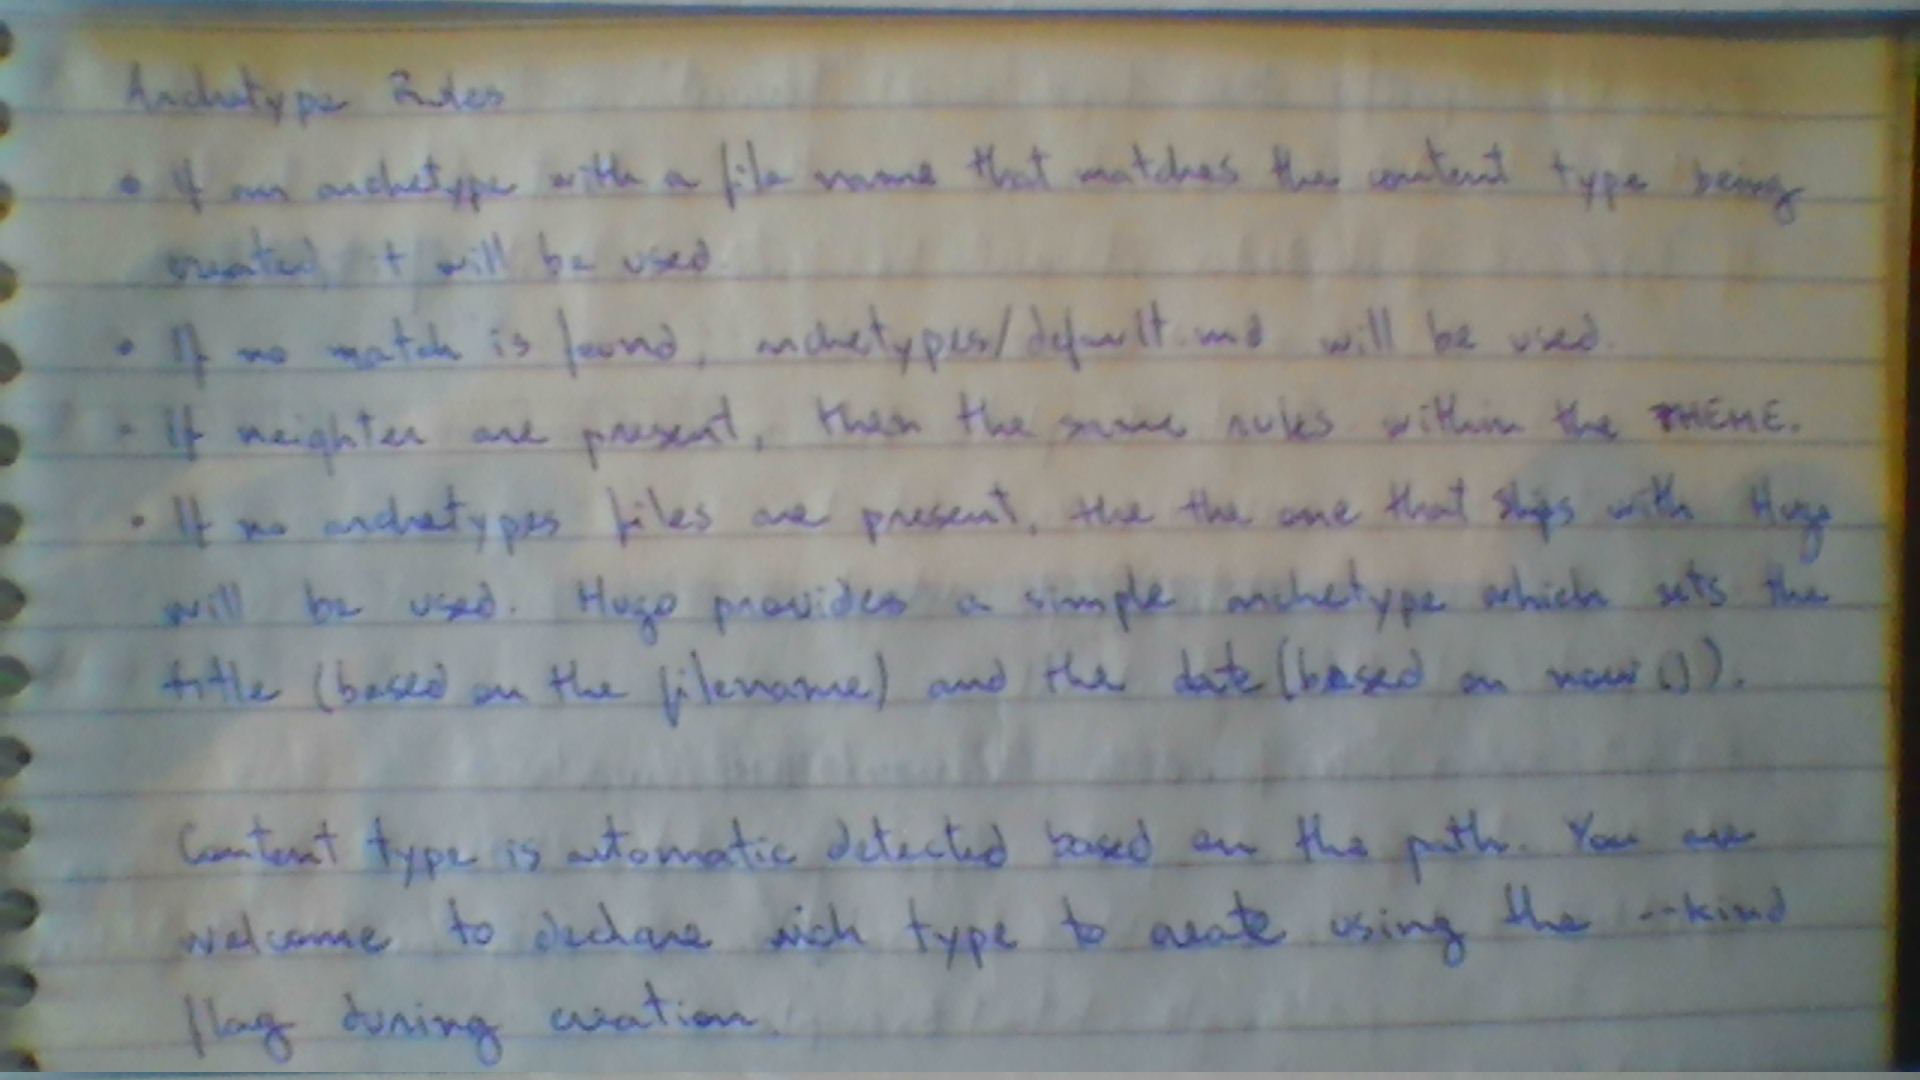 Archetype Rules
• If an archetype with a file name that matches the content type being
created, it will be used
• If no match is found, archetypes/default.md will be used.
• If neighter are present, then the same rules within the THEME.
• If no archetypes files are present, the the one that ships with Hugo
will be used. Hugo provides a simple archetype which sets the
title (based on the filename) and the date (based on now()).
Content type is automatic detected based on the path. You are
welcome to declare wich type to create using the --kind
flag during creation.